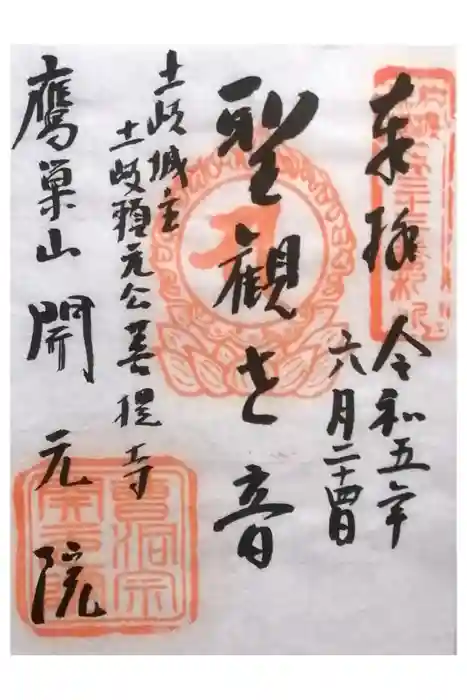 奉拝
令和五年
六月二十四日
聖観世音
土岐城主
土岐頼元公菩提寺
鷹巣山 開元院
曹洞宗